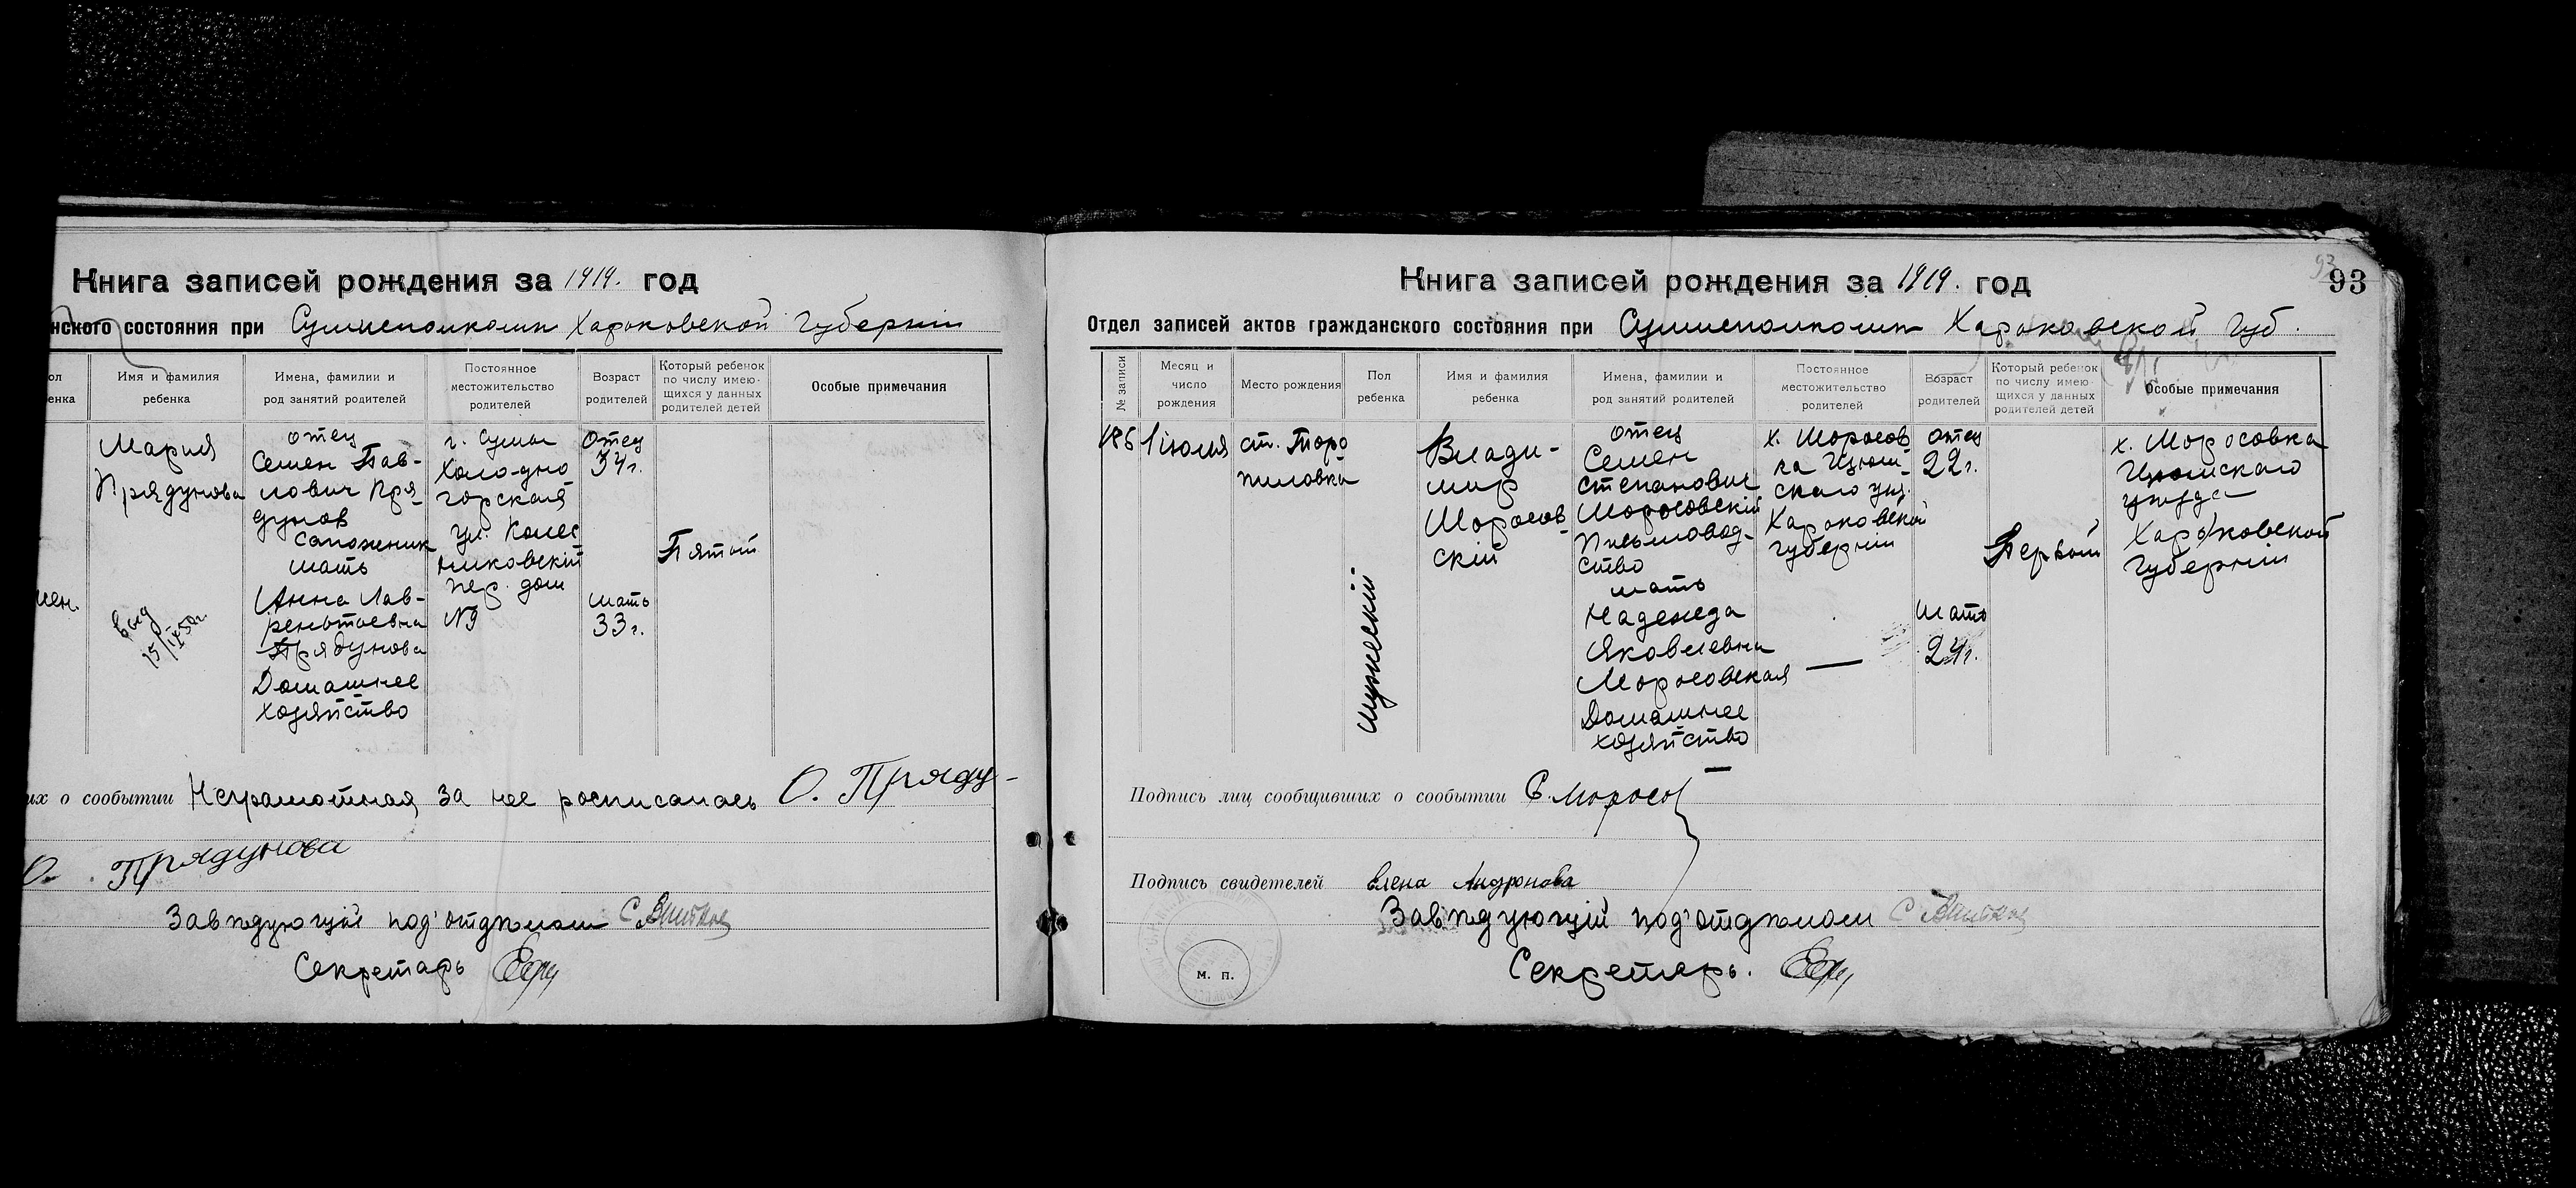 Книга записей рождения за 1919. год
нского состояния при Сумисполкоми Харьковской Губернии
ол
енка
Имя и фамилия
ребенка
Имена, фамилии и
род занятий родителей
Постоянное
местожительство
родителей
Возраст
родителей
Который ребенок
по числу имею-
щихся у данных
родителей детей
Особые примечания
жен.
Мария
Прядунова
выд
15/IX 50г.
отец
Семен Пав-
лович Пря-
дунов
сапожник
мать
Анна Лав-
рентьевна
Прядунова
Домашнее
хозяйство
г. Сумы
Холодно
горская
ул. Колес
никовский
пер. дом
№9
Отец
34г.
мать
33г.
Пятый
их о сообытии Неграмотная за нее росписалась О. Пряду-
О. Прядунова
Завѣдующій под'отдѣлом
Секретарь
Книга записей рождения за 1919. год
93
93
Отдел записей актов гражданского состояния при Сумисполкоми Харьковской губ.
№ записи
Месяц и
число
рождения
Место рождения
Пол
ребенка
Имя и фамилия
ребенка
Имена, фамилии и
род занятий родителей
Постоянное
местожительство
родителей
Возраст
родителей
Который ребенок
по числу имею-
щихся у данных
родителей детей
Особые примечания
186
1 июля
ст. Торо
пиловка
мужескій
Влади-
мир
Моросов
скій
отец
Семен
Степанович
Моросовскій
Письмовод-
ство
мать
Надежда
Яковлевна
Моросовская
Домашнее
хозяйство
х. Моросов
ка Изюм-
скаго уѣз.
Харьковской
губерніи
—
отец
22г.
мать
24г.
Первый
х. Моросовка
Изюмскаго
уѣзда
Харьковской
Губерніи
Подпись лиц сообщивших о сообытии С. Моросов
Подпись свидетелей Елена Андронова
Завѣдующій под'отдѣлом
Секретарь.
м. п.